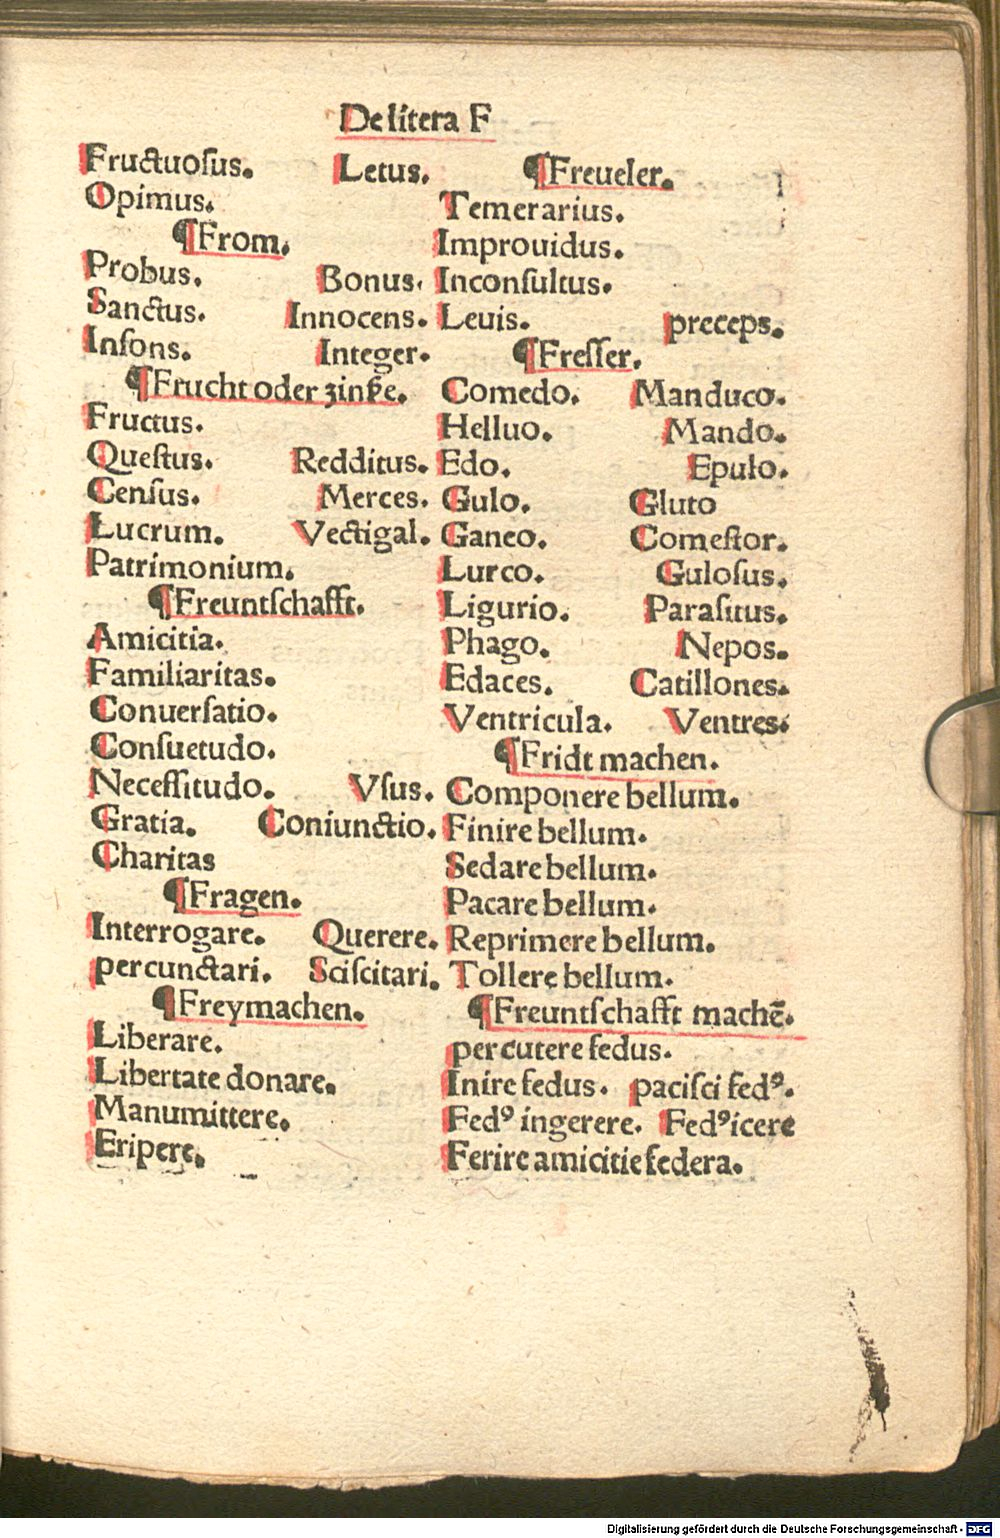 De litera F
Fructuoſus. Letus.
Opimus.
¶From.
Probus. Bonus.
Sanctus. Innocens.
Inſons. Integer.
¶Frucht oder zinße.
Fructus.
Queſtus. Redditus.
Cenſus. Merces.
Lucrum. Vectigal.
Patrimonium.
¶Freuntſchafft.
Amicitia.
Familiaritas.
Conuerſatio.
Conſuetudo.
Neceſſitudo. Vſus.
Gratia. Coniunctio.
Charitas
¶Fragen.
Interrogare. Querere.
percunctari. Sciſcitari.
¶Freymachen.
Liberare.
Libertate donare.
Manumittere.
Eripere.
¶Freueler.
Temerarius.
Improuidus.
Inconſultus.
Leuis. preceps.
¶Freſſer.
Comedo. Manduco.
Helluo. Mando.
Edo. Epulo.
Gulo. Gluto
Ganeo. Comeſtor.
Lurco. Guloſus.
Ligurio. Paraſitus.
Phago. Nepos.
Edaces. Catillones.
Ventricula. Ventres.
¶Fridt machen.
Componere bellum.
Finire bellum.
Sedare bellum.
Pacare bellum.
Reprimere bellum.
Tollere bellum.
¶Freuntſchafft machē.
percutere fedus.
Inire fedus. paciſci fedꝰ.
Fedꝰ ingerere. Fedꝰ icere
Ferire amicitie federa.
Digitalisierung gefördert durch die Deutsche Forschungsgemeinschaft - DFG